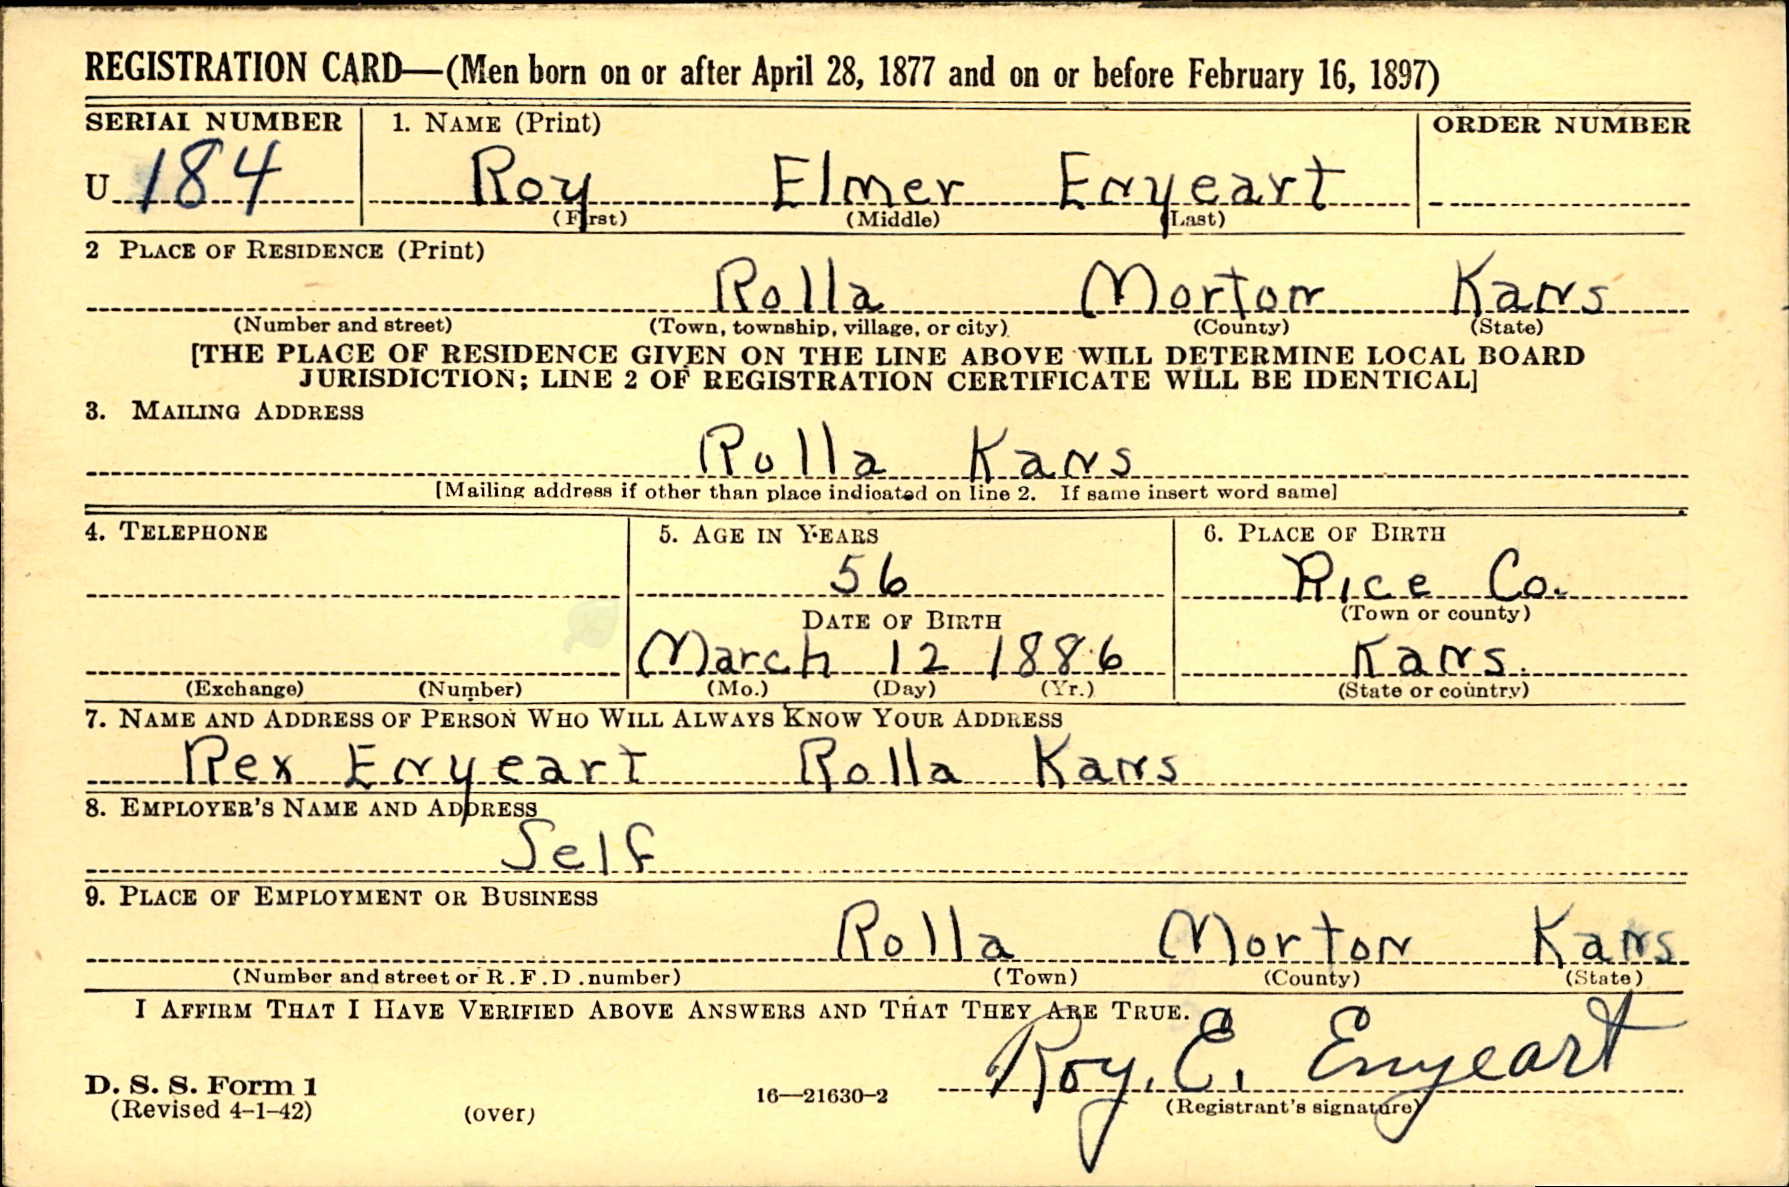 REGISTRATION CARD—(Men born on or after April 28, 1877 and on or before February 16, 1897)
SERIAL NUMBER 1. NAME (Print) ORDER NUMBER
U 184 Roy Elmer Enyeart
(First) (Middle) (Last)
2 PLACE OF RESIDENCE (Print)
Rolla Morton Kans
(Number and street) (Town, township, village, or city) (County) (State)
[THE PLACE OF RESIDENCE GIVEN ON THE LINE ABOVE WILL DETERMINE LOCAL BOARD
JURISDICTION; LINE 2 OF REGISTRATION CERTIFICATE WILL BE IDENTICAL]
3. MAILING ADDRESS
Rolla Kans
[Mailing address if other than place indicated on line 2. If same insert word same]
4. TELEPHONE 5. AGE IN YEARS 6. PLACE OF BIRTH
56 Rice Co.
DATE OF BIRTH (Town or county)
March 12 1886 Kans.
(Exchange) (Number) (Mo.) (Day) (Yr.) (State or country)
7. NAME AND ADDRESS OF PERSON WHO WILL ALWAYS KNOW YOUR ADDRESS
Rex Enyeart Rolla Kans
8. EMPLOYER'S NAME AND ADDRESS
Self
9. PLACE OF EMPLOYMENT OR BUSINESS
Rolla Morton Kans
(Number and street or R.F.D. number) (Town) (County) (State)
I AFFIRM THAT I HAVE VERIFIED ABOVE ANSWERS AND THAT THEY ARE TRUE.
Roy. E. Enyeart
D. S. S. Form 1
(Revised 4-1-42) (over) 16—21630-2 (Registrant's signature)